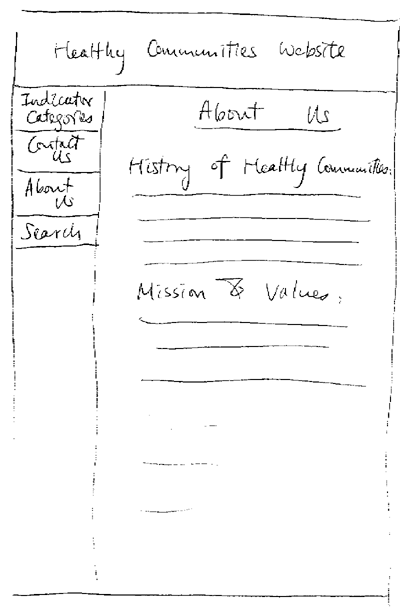 Healthy Communities Website
Indicator
Categories
Contact
Us
About
Us
Search
About Us
History of Healthy Communities:
Mission & Values: